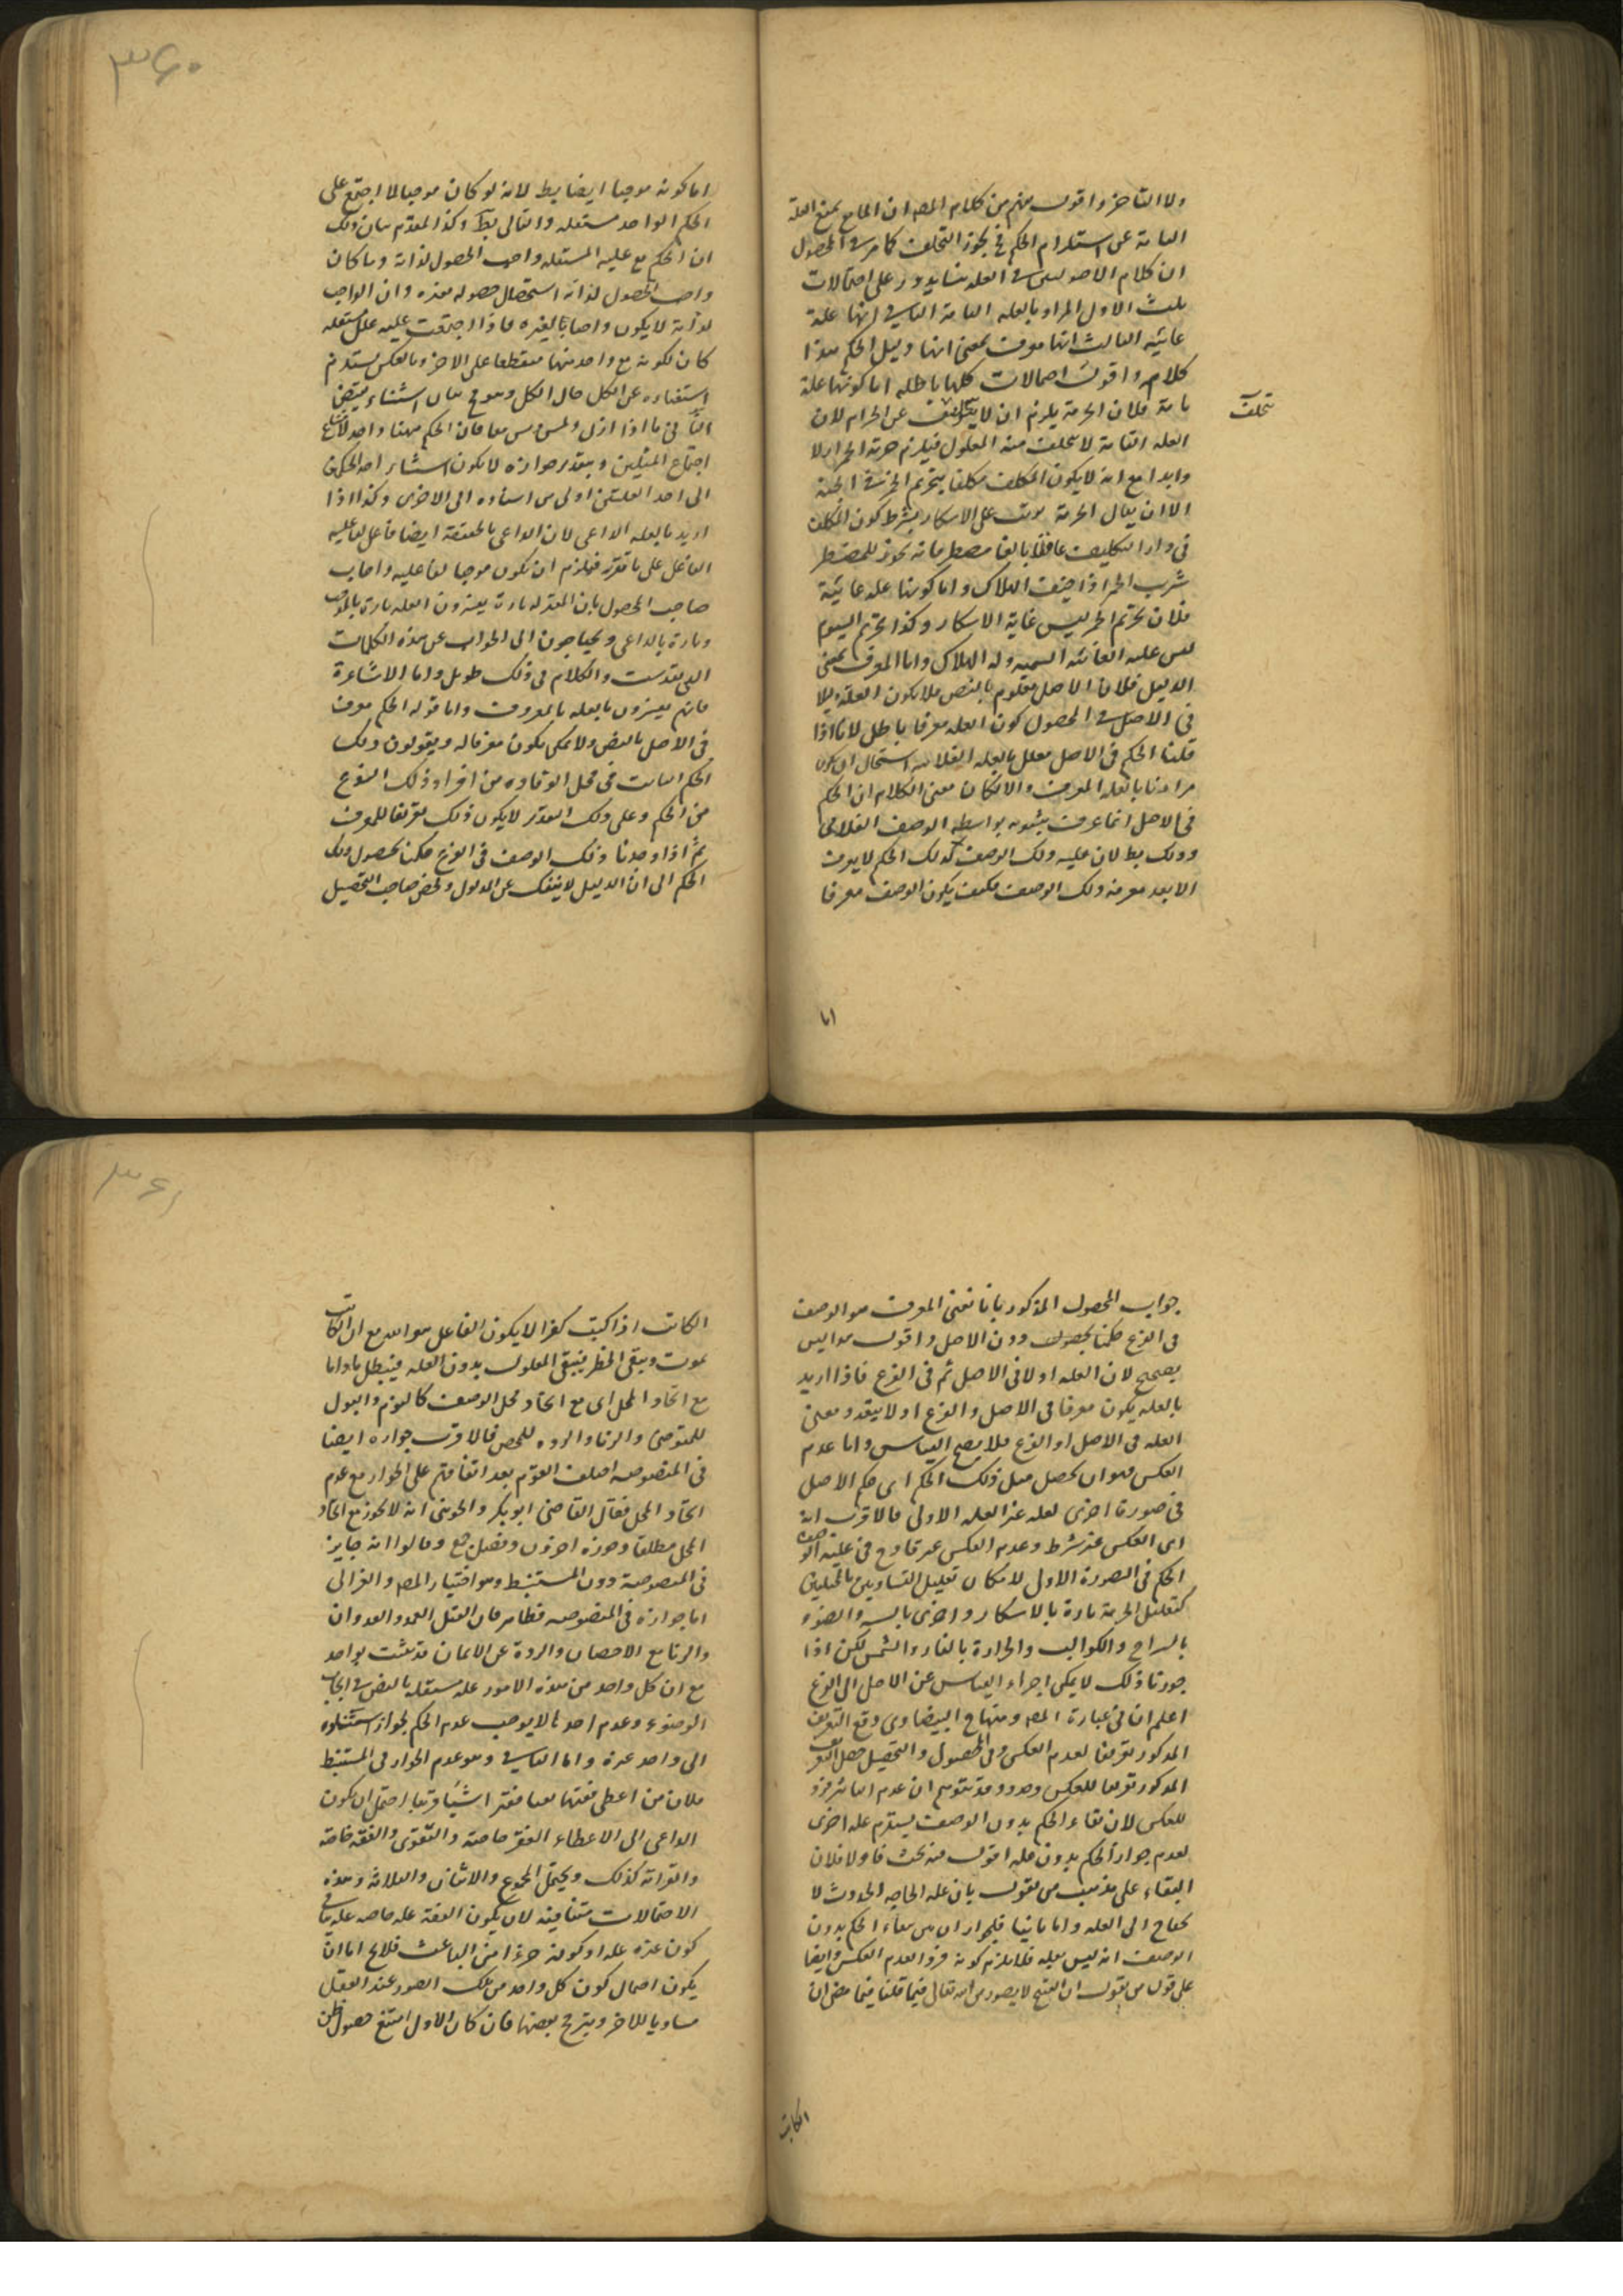 ٣۶٠
ولا التأخر واقول منهم من كلام المص ان المانع يمنع العلة
التامة عن استلزام الحكم فح يجوز التخلف كما مر فى المحصول
ان كلام الاصوليين فى العلة هنا يدور على احتمالات
ثلث الاول المراد بالعلة التامة الثانى انها علة
غائية الثالث انها معرف بمعنى انها دليل الحكم هذا
كلامه واقول احتمالات كلها باطلة اما كونها علة
تامة فلان الحرمة يلزم ان لا يتخلف عن الحرام لان
تتخلف
العلة التامة لا يتخلف عنه المعلول فيلزم حرمة الخمر ازلا
وابدا مع انه لا يكون المكلف مكلفا بتحريم الخمر فى الجنة
الا ان يقال الحرمة موقوف على الاسكار بشرط كون المكلف
فى دار التكليف عاقلا بالغا فانه يجوز للمضطر
شرب الخمر اذا خيف الهلاك واما كونها علة غائية
فلان تحريم الخمر ليس غاية الاسكار وكذا تحريم السموم
ليس علته الغائية السمية ولا الهلاك واما المعرف بمعنى
الدليل فلان الاصل معلوم بالنص فلا يكون العلة دليلا
فى الاصل فى المحصول كون العلة معرفا باطل لانا اذا
قلنا الحكم فى الاصل معلل بالعلة الفلانية استحال ان يكون
مرادنا بالعلة المعرف والا لكان معنى الكلام ان الحكم
فى الاصل انما عرف ثبوته بواسطة الوصف الفلانى
وذلك بط لان علية ذلك الوصف لذلك الحكم لا يعرف
الا بعد معرفة ذلك الوصف فكيف يكون الوصف معرفا
اما
اما كونه موجبا ايضا بط لانه لو كان موجبا لما اجتمع على
الحكم الواحد مستقلة والتالى بط وكذا المقدم بيان ذلك
ان الحكم مع عليه المستقلة واجب الحصول لذاته وما كان
واجب الحصول لذاته استحال حصوله بغيره وان الواجب
لذاته لا يكون واجبا بالغيره فاذا اجتمعت عليه علل مستقلة
كان لكونه مع واحد منها منقطعا على الاخر وبالعكس يستلزم
استغناءه عن الكل حال الكل وهو مح بيان استثناء نقيض
التالى فى ما اذا زنى ولمس ومس معا فان الحكم هنا واحد لامتناع
اجتماع المثلين وبتقدير جوازه لا يكون استناد احد الحكمين
الى احد العلتين اولى من اسناده الى الاخرى وكذا اذا
اريد بالعلة الداعى لان الداعى بالحقيقة ايضا فاعل لفاعلية
الفاعل على ما تقرر فيلزم ان يكون موجبا لفاعليه واجاب
صاحب الحصول بان المعتزلة تارة يفسرون العلة تارة بالموجب
وتارة بالداعى ويحتاجون الى الجواب عن هذه الكلمات
التى تقدمت والكلام فى ذلك طويل واما الاشاعرة
فانهم يفسرون بالعلة بالمعروف واما قوله الحكم معرف
فى الاصل بالنص ولا يمكن يكون معرفا له ويقولون ذلك
الحكم الثابت فى محل الوفاق فرد من افراد ذلك النوع
من الحكم وعلى ذلك التقدير لا يكون ذلك تعريفا للمعرف
ثم اذا وجدنا ذلك الوصف فى الفرع حكمنا بحصول ذلك
الحكم الى ان الدليل لا ينفك عن المدلول ولخص صاحب التحصيل
٣۶١
جواب المحصول المذكور بانا نعنى المعرف هو الوصف
فى الفرع حكمنا بحصول دون الاصل واقول هذا ليس
بصحيح لان العلة اولا فى الاصل ثم فى الفرع فاذا اريد
بالعلة يكون معرفا فى الاصل والفرع اولا يتعدد معنى
العلة فى الاصل او الفرع فلا يصح القياس واما عدم
العكس فهو ان يحصل مثل ذلك الحكم اى حكم الاصل
فى صورة اخرى لعلة غير العلة الاولى فالاقرب انه
اى العكس غير شرط وعدم العكس غير قادح فى علية الوصف
الحكم فى الصورة الاولى لامكان تعليل المتساويين بالمختلفين
كتعليل الحرمة تارة بالاسكار واخرى بالسم والضوء
بالسراج والكواكب والحرارة بالنار والشمس لكن اذا
جوزنا ذلك لا يمكن اجراء القياس عن الاصل الى الفرع
اعلم ان فى عبارة المص ومنهاج البيضاوى وقع التعريف
المذكور تعريفا لعدم العكس وفى المحصول والتحصيل جعل التعريف
المذكور تعريفا للعكس وحده وقد يتوهم ان عدم التاثير فرد
للعكس لان بقاء الحكم بدون الوصف يستلزم علة اخرى
لعدم جواز الحكم بدون علة اقول فيه بحث فاولا فلان
البقاء على مذهب من يقول بان علة الحاجة الحدوث لا
يحتاج الى العلة واما ثانيا فلجواز ان من بقاء الحكم بدون
الوصف انه ليس بعلة فلا يلزم كونه فرد العدم العكس وايضا
على قول من يقول ان القبيح لا يصدر من الله تعالى فيما قلنا فيما مضى ان
الكاتب
الكاتب اذا كتب كفرا لا يكون الفاعل هو الله مع ان الكاتب
يموت ويبقى الخط فيبقى المعلول بدون العلة فيبطل ما واما
مع اتحاد المحل اى مع اتحاد محل الوصف كالنوم والبول
للمتوضى والزنا والردة للمحصن فالاقرب جوازه ايضا
فى المنصوصة اختلف القوم بعد اتفاقهم على الجواز مع عدم
اتحاد المحل فقال القاضى ابو بكر والجوينى انه لا يجوز مع اتحاد
المحل مطلقا وجوزه اخرون وفصل جمع وقالوا انه جايز
فى المنصوصة دون المستنبط وهو اختيار المص والغزالى
اما جوازه فى المنصوصة فظاهر فان القتل العمد والعدوان
والزنا مع الاحصان والردة عن الايمان قد يثبت بواحد
مع ان كل واحد من هذه الامور علة مستقلة بالنص فى ايجاب
الوضوء وعدم احدها لا يوجب عدم الحكم لجواز استناده
الى واحد غيره واما الثانى وهو عدم الجواز فى المستنبط
فلان من اعطى فقيها فقيرا شيئا قريبا احتمل ان يكون
الداعى الى الاعطاء الفقر خاصة والتقوى والفقه خاصة
والقرابة كذلك ويحتمل المجموع والاثنان والثلاثة وهذه
الاحتمالات متنافية لان يكون الفقه علة خاصة علة ينافى
كون غيره علة او كونه جزءا من الباعث فلا يخ اما ان
يكون احتمال كون كل واحد من تلك الصور عند العقل
مساويا للاخر ويترجح بعضها فان كان الاول امتنع حصول ظن